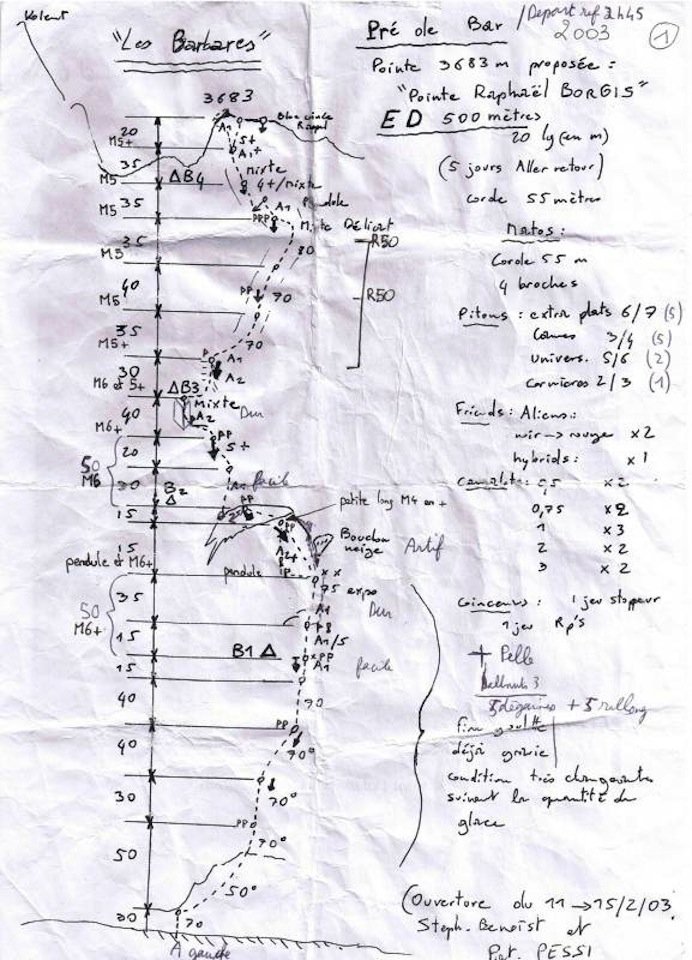 "Les Barbares"
Pré de Bar
Départ ref 2h45
2003
1
Pointe 3683 m proposée :
"Pointe Raphaël BORGIS"
ED 500 mètres
20 lg (en m)
(5 jours Aller retour)
corde 55 mètres
Matos :
Corde 55 m
4 broches
Pitons : extra plats 6/7 (5)
Cornes 3/4 (5)
univers. 5/6 (2)
cornières 2/3 (1)
Friends : Aliens :
noir → rouge x2
hybrids : x1
Camalots : 0,5 x2
0,75 x2
1 x3
2 x2
3 x2
Coinceurs : 1 jeu stoppeur
1 jeu Rp's
+ Pelle
5 dégaines + 5
fine goulotte
déjà gravie
condition très changeantes
suivant la quantité de
glace
(Ouverture du 11 → 15/2/03
Steph. Benoist et
Pat. PESSI
Volent
3683
A1
Rappel
20
M5+
5+
A1+
35
M5
Δ B4
mixte
4+/mixte
35
M5
A1
Pendule
PRP
Mixte Délicat
35
M5
80
R50
R50
40
M5
PP
70
35
M5+
70
P
A1
30
M6 et 5+
A2
Δ B3
Mixte
Dur
40
M6+
A2
PP
5+
20
50
M6
30
facile
B2
Δ
PP
petite long M4 en +
15
PP
A2+
Bouchon
neige
Artif
15
pendule et M6+
pendule
P
xx
75 expo
35
50
M6+
A1
Dur
PP
15
A1/5
B1 Δ
xPP
A1
facile
15
40
70
PP
40
70°
30
70°
PP
50
70°
50°
30
70
A gauche